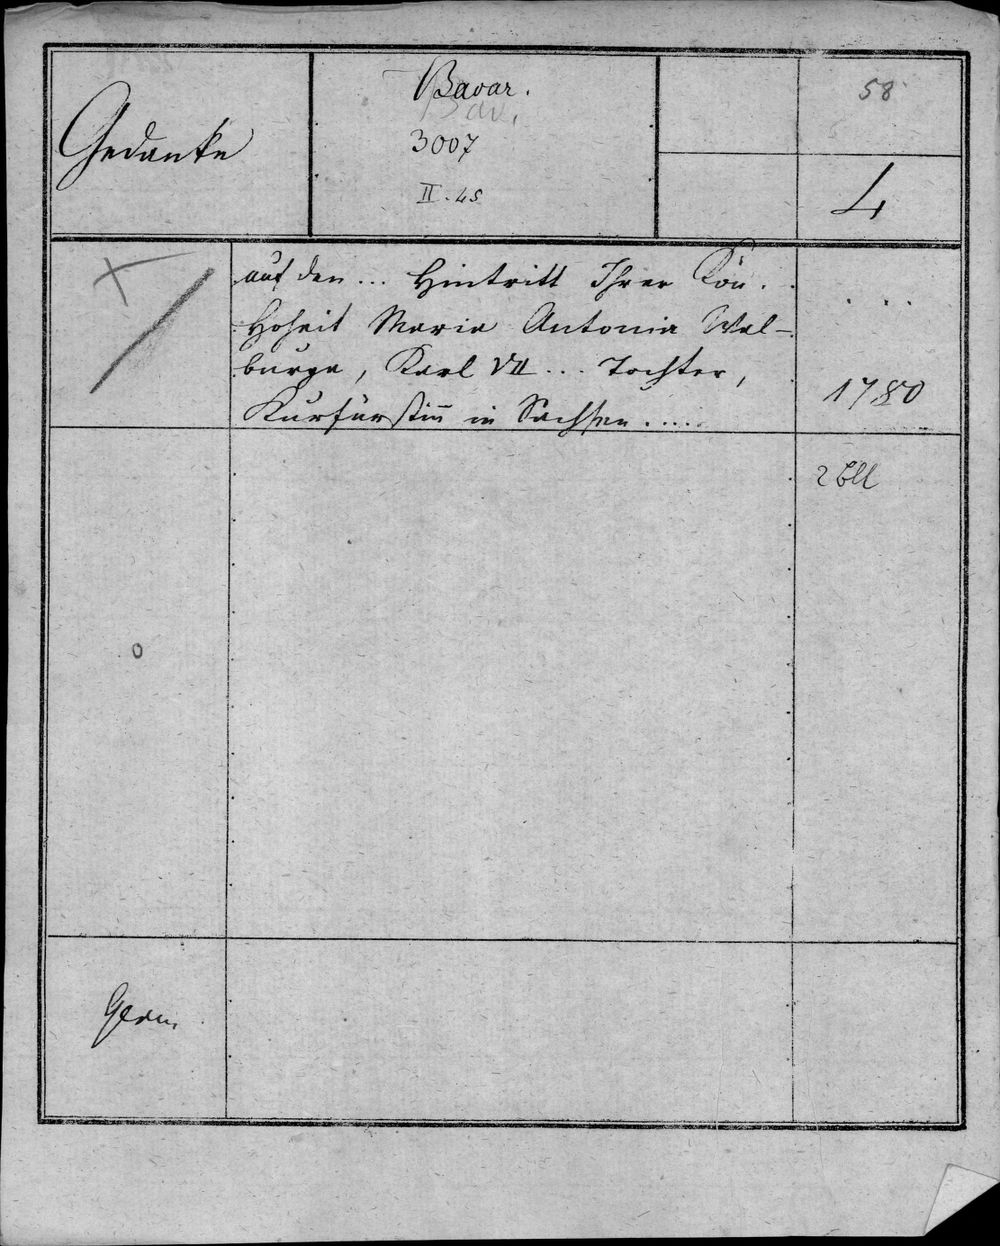 Gedanke
Bavar.
Bav.
3007
II. 45
58
4
auf den ... Hintritt Ihrer Kön.
Hoheit Maria Antonia Wal-
burga, Karl VII ... Tochter,
Kurfürstin in Sachsen .....
....
1780
2 Bll
0
Germ.